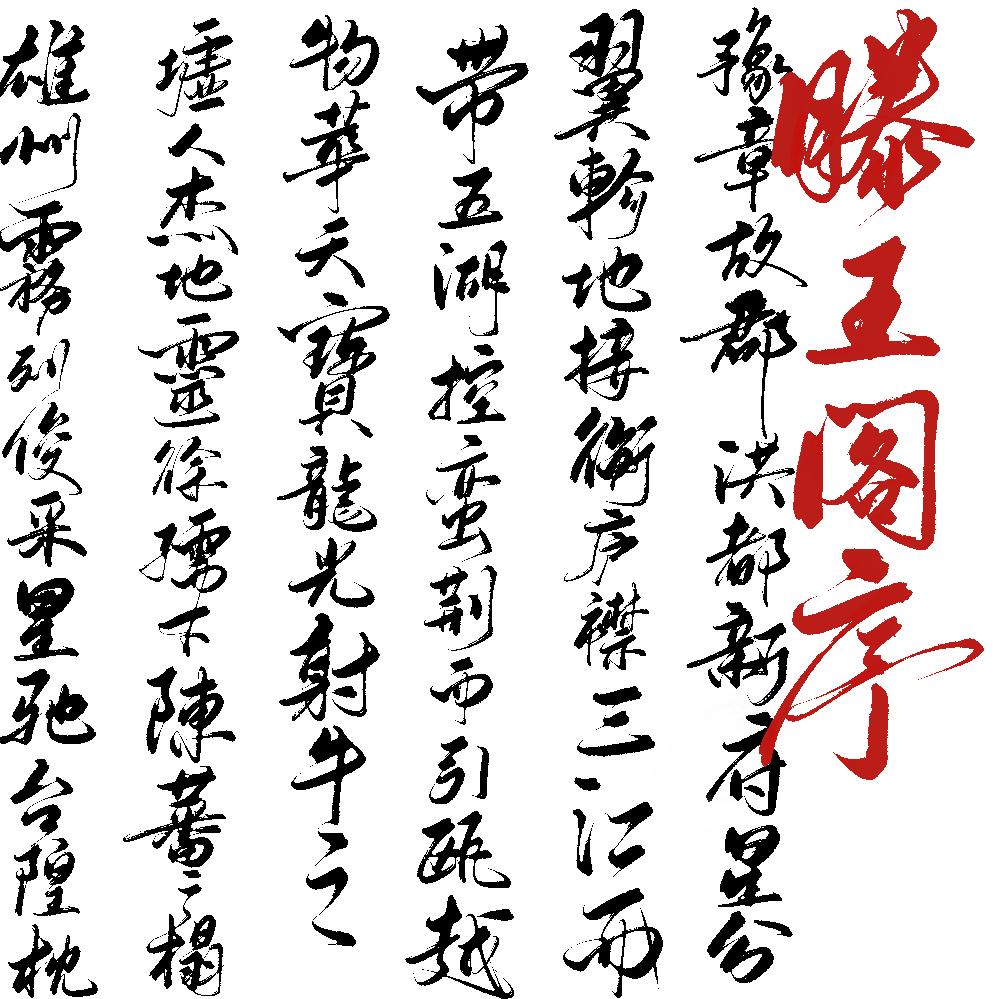 滕王阁序
豫章故郡洪都新府星分
翼軫地接衡庐襟三江而
带五湖控蛮荆而引瓯越
物華天寳龍光射牛之
墟人杰地靈徐孺下陳蕃之榻
雄州霧列俊采星驰台隍枕